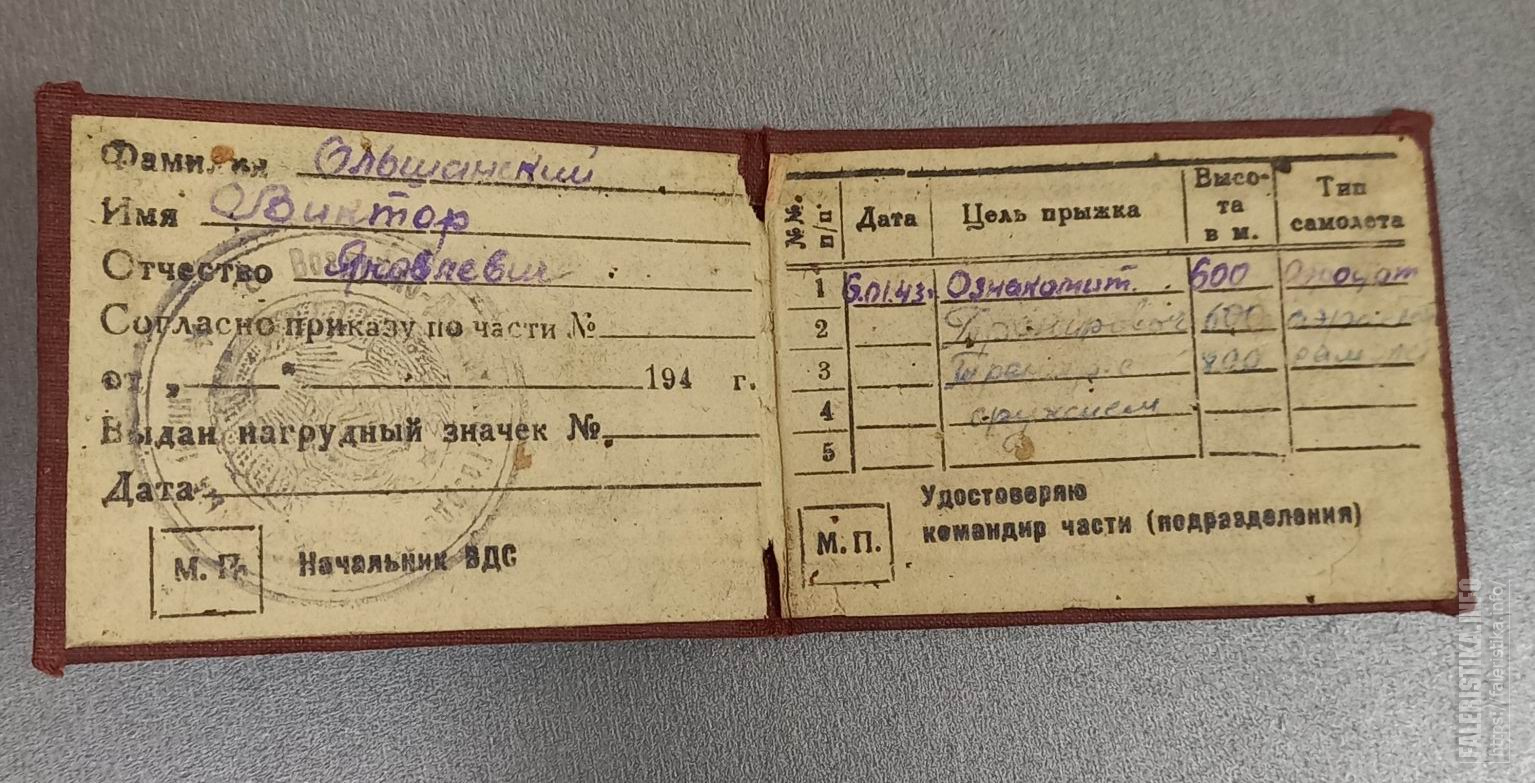 Фамилия Ольшанский
Имя Виктор
Отчество Яковлевич
Согласно приказу по части №
от „ “ 194 г.
Выдан нагрудный значек №
Дата
М. П. Начальник ВДС
№№ п/п. Дата Цель прыжка Высо-та в м. Тип самолета
1 Ознакомит. 600
2 Тренировоч 600
3 800
4 оружием
5
М. П. Удостоверяю
командир части (подразделения)
FALERISTIKA.INFO
https://faleristika.info